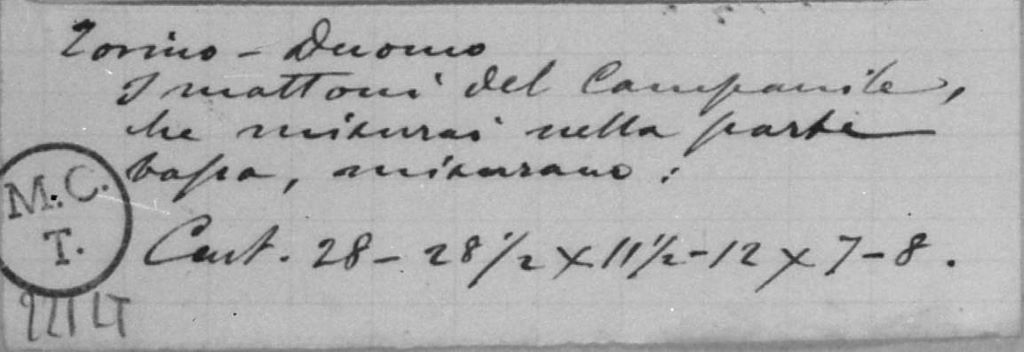 Torino - Duomo
I mattoni del Campanile,
che misurai nella parte
bassa, misurano:
M.C.
T.
Cent. 28 - 28 1/2 x 11 1/2 - 12 x 7 - 8.